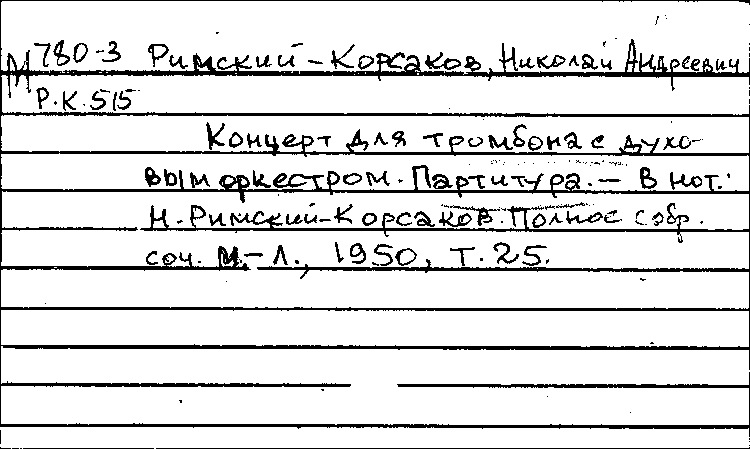 М 780-3 Римский-Корсаков, Николай Андреевич
Р.К.515
Концерт для тромбона с духо-
вым оркестром. Партитура. — В нот.:
Н. Римский-Корсаков. Полное собр.
соч. М.-Л., 1950, Т. 25.